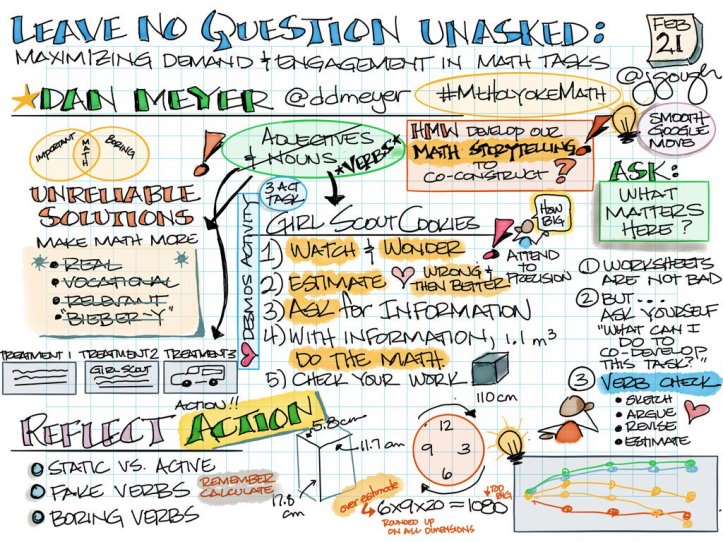 LEAVE NO QUESTION UNASKED:
FEB
21
MAXIMIZING DEMAND & ENGAGEMENT IN MATH TASKS
@jgough
DAN MEYER @ddmeyer #MtHolyokeMath
IMPORTANT
MATH
BORING
ADJECTIVES
& NOUNS
*VERBS*
HMW DEVELOP OUR
MATH STORYTELLING
TO
CO-CONSTRUCT?
SMOOTH
GOOGLE
MOVE
UNRELIABLE
SOLUTIONS
MAKE MATH MORE
• REAL
• VOCATIONAL
• RELEVANT
• "BIEBER-Y"
TREATMENT 1
TREATMENT 2
TREATMENT 3
GIRL SCOUT
ACTION!!
3 ACT
TASK
DESMOS ACTIVITY
GIRL SCOUT COOKIES
1) WATCH & WONDER
2) ESTIMATE
WRONG &
THEN BETTER
3) ASK for INFORMATION
4) WITH INFORMATION, 1.1 m³
DO THE MATH.
5) CHECK YOUR WORK
110 cm
HOW
BIG
ATTEND
TO
PRECISION
ASK:
WHAT
MATTERS
HERE?
① WORKSHEETS
ARE NOT BAD
② BUT...
ASK YOURSELF
"WHAT CAN I
DO TO
CO-DEVELOP
THIS TASK?"
③ VERB CHECK
• SKETCH
• ARGUE
• REVISE
• ESTIMATE
REFLECT ACTION
STATIC VS. ACTIVE
FAKE VERBS
REMEMBER
CALCULATE
BORING VERBS
5.8 cm
11.7 cm
17.8
cm
12
9 3
6
over estimate
6x9x20 = 1080
TOO
BIG
ROUNDED UP
ON ALL DIMENSIONS